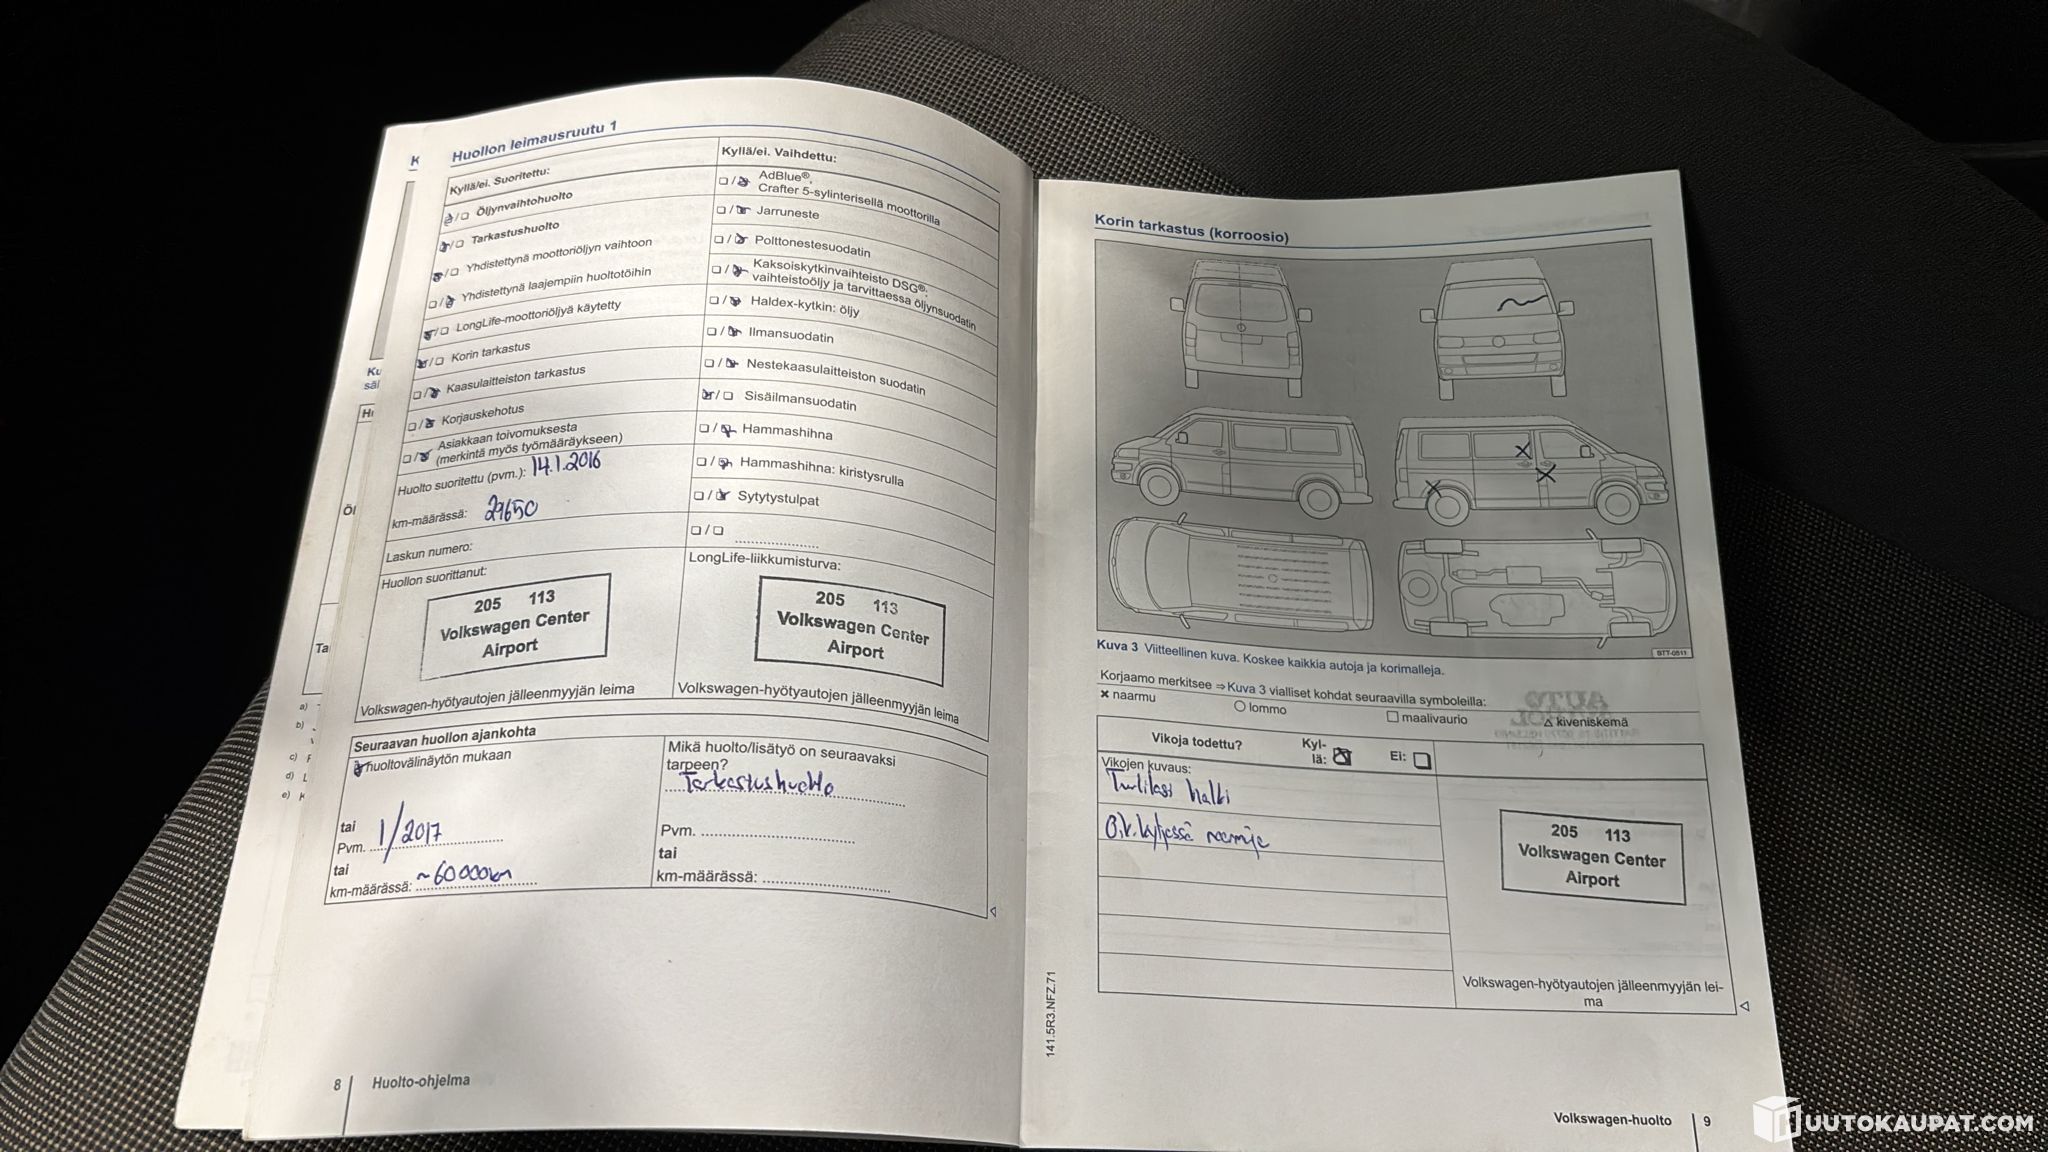 Huollon leimausruutu 1
Kyllä/ei. Suoritettu:
Öljynvaihtohuolto
Tarkastushuolto
Yhdistettynä moottoriöljyn vaihtoon
Yhdistettynä laajempiin huoltotöihin
LongLife-moottoriöljyä käytetty
Korin tarkastus
Kaasulaitteiston tarkastus
Korjauskehotus
Asiakkaan toivomuksesta
(merkintä myös työmääräykseen)
Huolto suoritettu (pvm.): 14.1.2016
km-määrässä: 29650
Laskun numero:
Huollon suorittanut:
205 113
Volkswagen Center
Airport
Volkswagen-hyötyautojen jälleenmyyjän leima
Kyllä/ei. Vaihdettu:
AdBlue®,
Crafter 5-sylinterisellä moottorilla
Jarruneste
Polttonestesuodatin
Kaksoiskytkinvaihteisto DSG®:
vaihteistoöljy ja tarvittaessa öljynsuodatin
Haldex-kytkin: öljy
Ilmansuodatin
Nestekaasulaitteiston suodatin
Sisäilmansuodatin
Hammashihna
Hammashihna: kiristysrulla
Sytytystulpat
LongLife-liikkumisturva:
205 113
Volkswagen Center
Airport
Volkswagen-hyötyautojen jälleenmyyjän leima
Seuraavan huollon ajankohta
huoltovälinäytön mukaan
tai
Pvm. 1/2017
tai
km-määrässä: ~60000km
Mikä huolto/lisätyö on seuraavaksi
tarpeen?
Tarkastushuolto
Pvm.
tai
km-määrässä:
8 Huolto-ohjelma
Korin tarkastus (korroosio)
BTT-0511
Kuva 3 Viitteellinen kuva. Koskee kaikkia autoja ja korimalleja.
Korjaamo merkitsee ⇒ Kuva 3 vialliset kohdat seuraavilla symboleilla:
× naarmu ○ lommo □ maalivaurio △ kiveniskemä
Vikoja todettu? Kyl-
lä: Ei:
Vikojen kuvaus:
Tuulilasi halki
O.k. kyljessä naarmuja
205 113
Volkswagen Center
Airport
Volkswagen-hyötyautojen jälleenmyyjän lei-
ma
141.5R3.NFZ.71
Volkswagen-huolto 9
UUTOKAUPAT.COM